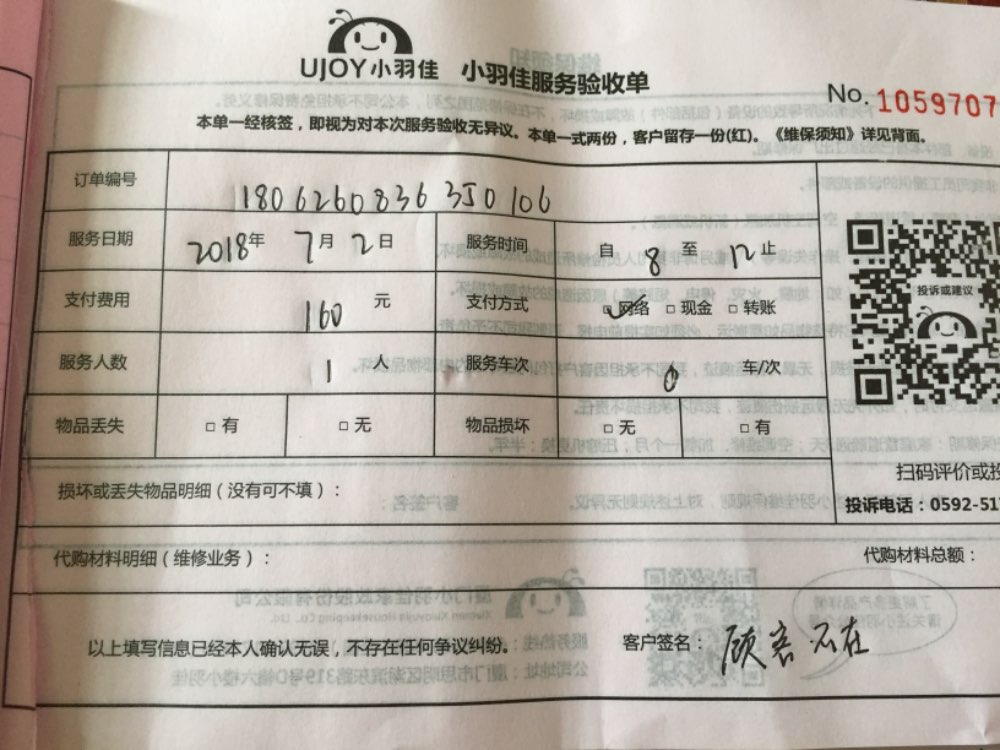 UJOY小羽佳 小羽佳服务验收单
No. 1059707
本单一经核签，即视为对本次服务验收无异议。本单一式两份，客户留存一份(红)。《维保须知》详见背面。
订单编号 180626083635J0106
服务日期 2018年 7月 2日 服务时间 自 8 至 12 止
支付费用 160 元 支付方式 ☑网络 □现金 □转账
服务人数 1 人 服务车次 0 车/次
物品丢失 □有 □无 物品损坏 □无 □有
投诉或建议
扫码评价或投
投诉电话：0592-51
损坏或丢失物品明细（没有可不填）：
代购材料明细（维修业务）： 代购材料总额：
以上填写信息已经本人确认无误，不存在任何争议纠纷。 客户签名： 顾客不在